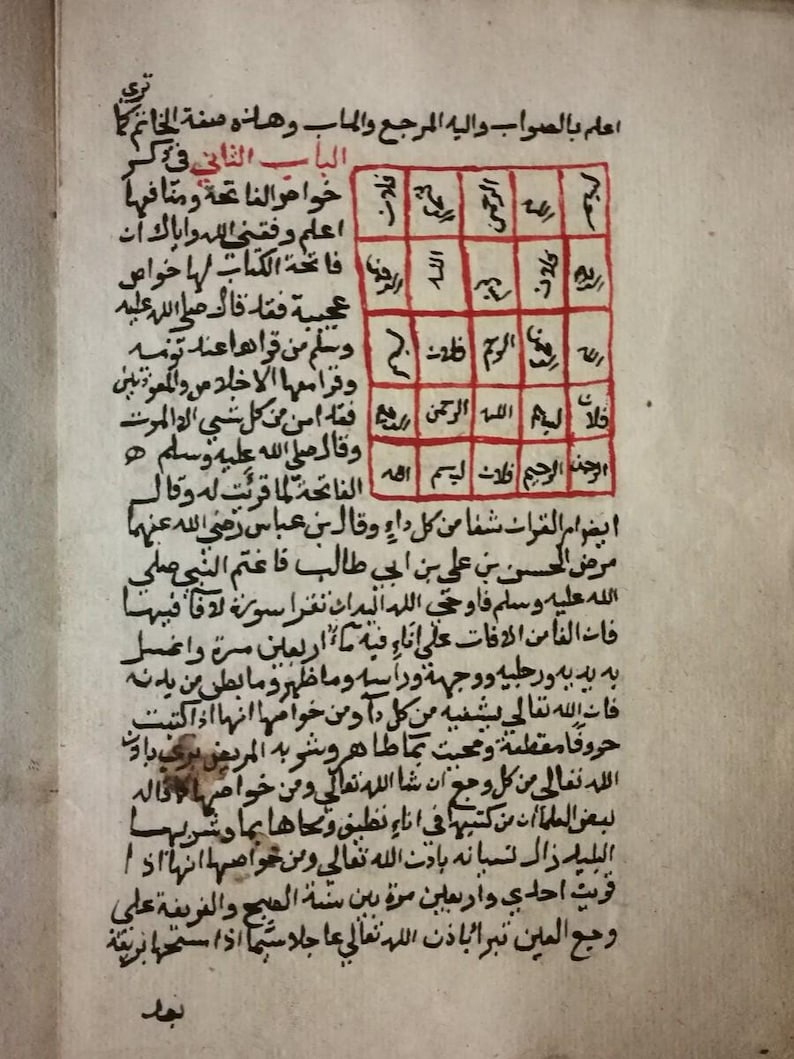 ترى
اعلم بالصواب واليه المرجع والماب وهذه صفة الخاتم كما
الباب الثاني في ذكر
خواص الفاتحة ومنافعها
اعلم وفقني الله واياك ان
فاتحة الكتاب لها خواص
عجيبة فقد قال صلى الله عليه
وسلم من قراها عند نومه
وقرا معها الاخلاص والمعوذتين
فقد امن من كل شي الا الموت
وقال صلى الله عليه وسلم
الفاتحة لما قرئت له وقال
بسم الله الرحمن فلان
الرحيم فلان بسم الله الرحمن
الله الرحمن الرحيم فلان بسم
فلان بسم الله الرحمن الرحيم
الرحمن الرحيم فلان بسم الله
ايضا ام القران شفا من كل داء وقال بن عباس رضي الله عنهما
مرض الحسن بن علي بن ابي طالب فاغتم النبي صلي
الله عليه وسلم فاوحي الله اليه ان تقرا سورة لا فا فيها
فان الفا من الافات علي اناء فيه ماء اربعين مرة واغسل
به يديه ورجليه ووجهه وراسه وما ظهر وما بطن من بدنه
فان الله تعالي يشفيه من كل دآ ومن خواصها انها اذا كتبت
حروفا مقطعة ومحيت بما طاهر وشربه المريض يبري باذن
الله تعالي من كل وجع ان شا الله تعالي ومن خواصها ما قاله
بعض العلما ان من كتبها في اناء نظيف ومحاها بما وشربها
البليد زال نسيانه باذن الله تعالي ومن خواصها انها اذا
قريت احدي واربعين مرة بين سنة الصبح والفريضة علي
وجع العين تبرا باذن الله تعالي عاجلا سيما اذا مسحها بريقه
بعد